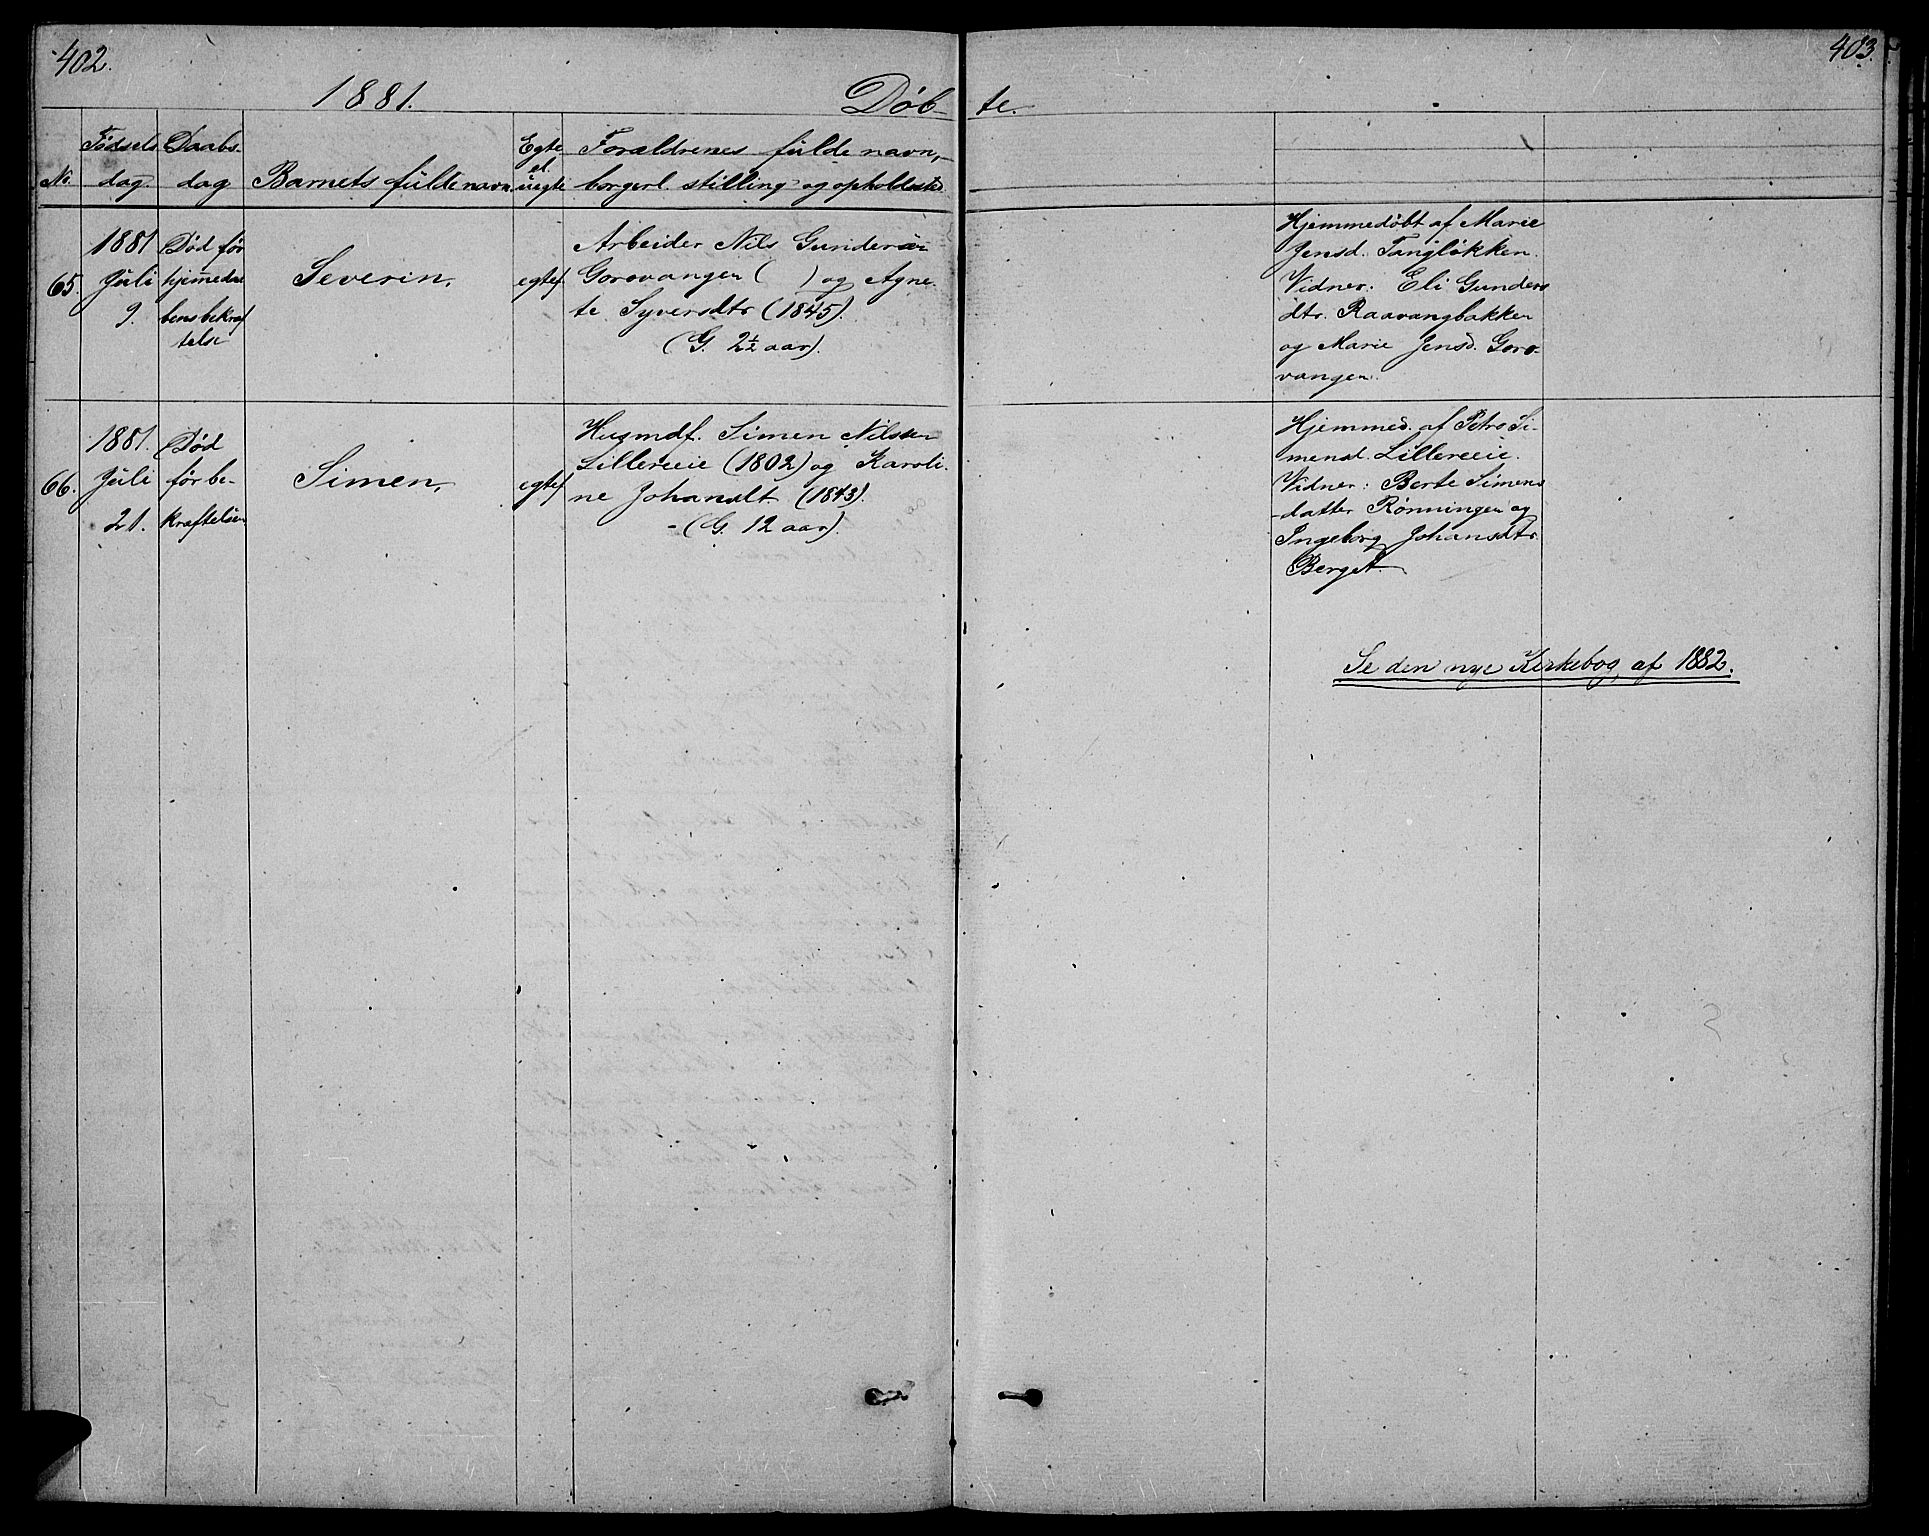 402.
403.
1881.
Døbte.
No.
Fødsels dag.
Daabs- dag
Barnets fulde navn.
Egte el. uegte
Forældrenes fulde navn,
borgerl. stilling og opholdssted
65.
1881
Juli
9.
Død før
hjemmedaa
bens bekræf
telse
Severin,
egtef.
Arbeider Nils Gundersen
Gorovangen ( ) og Agne
te Syversdtr (1845).
(G. 2½ aar).
Hjemmedøbt af Marie
Jensd. Tangløkken.
Vidner: Eli Gunders
dtr. Raavangbakken
og Marie Jensd. Goro-
vangen.
66.
1881.
Juli
21.
Død
før be-
kræftelsen
Simen,
egtef.
Husmdf. Simen Nilsen
Lillereeie (1802) og Karoli-
ne Johansdt. (1843).
-(G. 12 aar).
Hjemmed. af Petro Si-
mensd. Lillereeie.
Vidner: Berte Simens
-datter Rønningen og
Ingeborg Johansdtr.
Berget.
Se den nye Kirkebog af 1882.